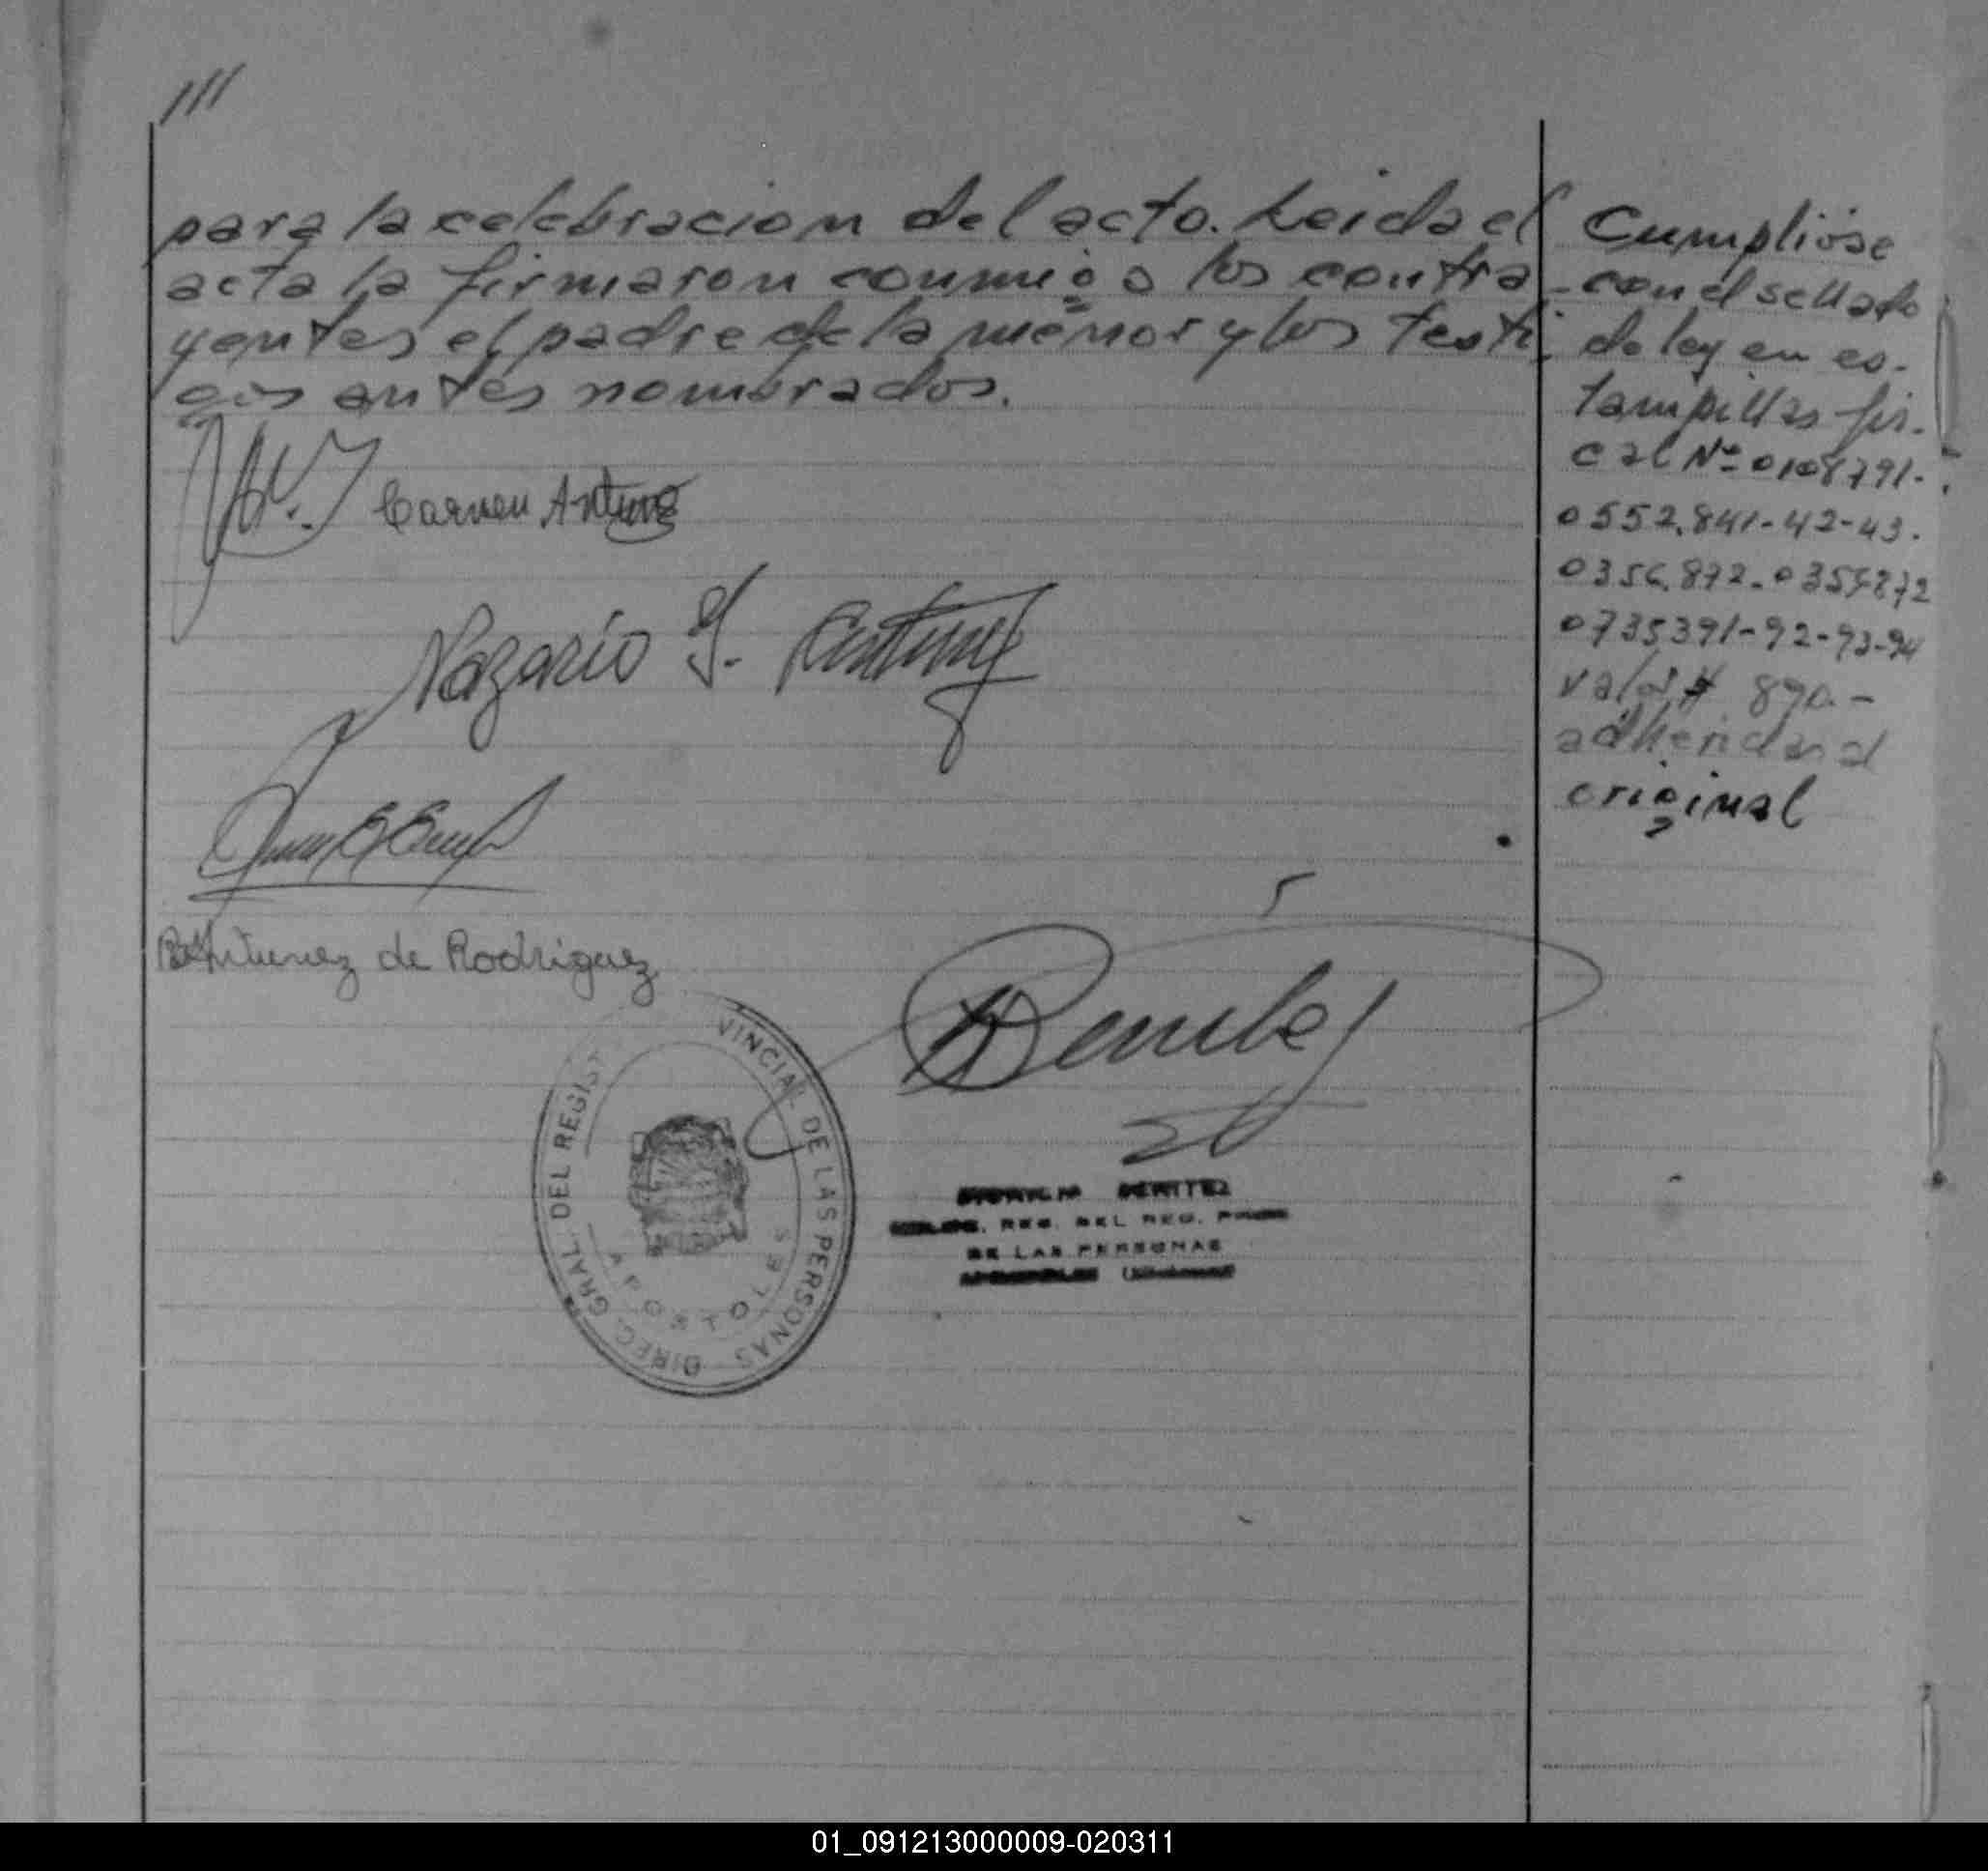 ///
para la celebracion del acto. Leida el
acta la firmaron conmigo los contra
yentes el padre de la menor y los testi
gos antes nombrados.
Carmen Antunez
Nazario J. Antunez
Antunez de Rodriguez
Benitez
DIREC. GRAL. DEL REGIST VINCIAL DE LAS PERSONAS
APOSTOLES
BENITEZ
REG. DEL REG.
DE LAS PERSONAS
Cumplióse
con el sellado
de ley en es-
tampillas fis-
cal Nº 0108791-
0552.841-42-43.
0356.872-0357872
0735391-92-93-94
valor $ 890.-
adheridas al
original
01_091213000009-020311